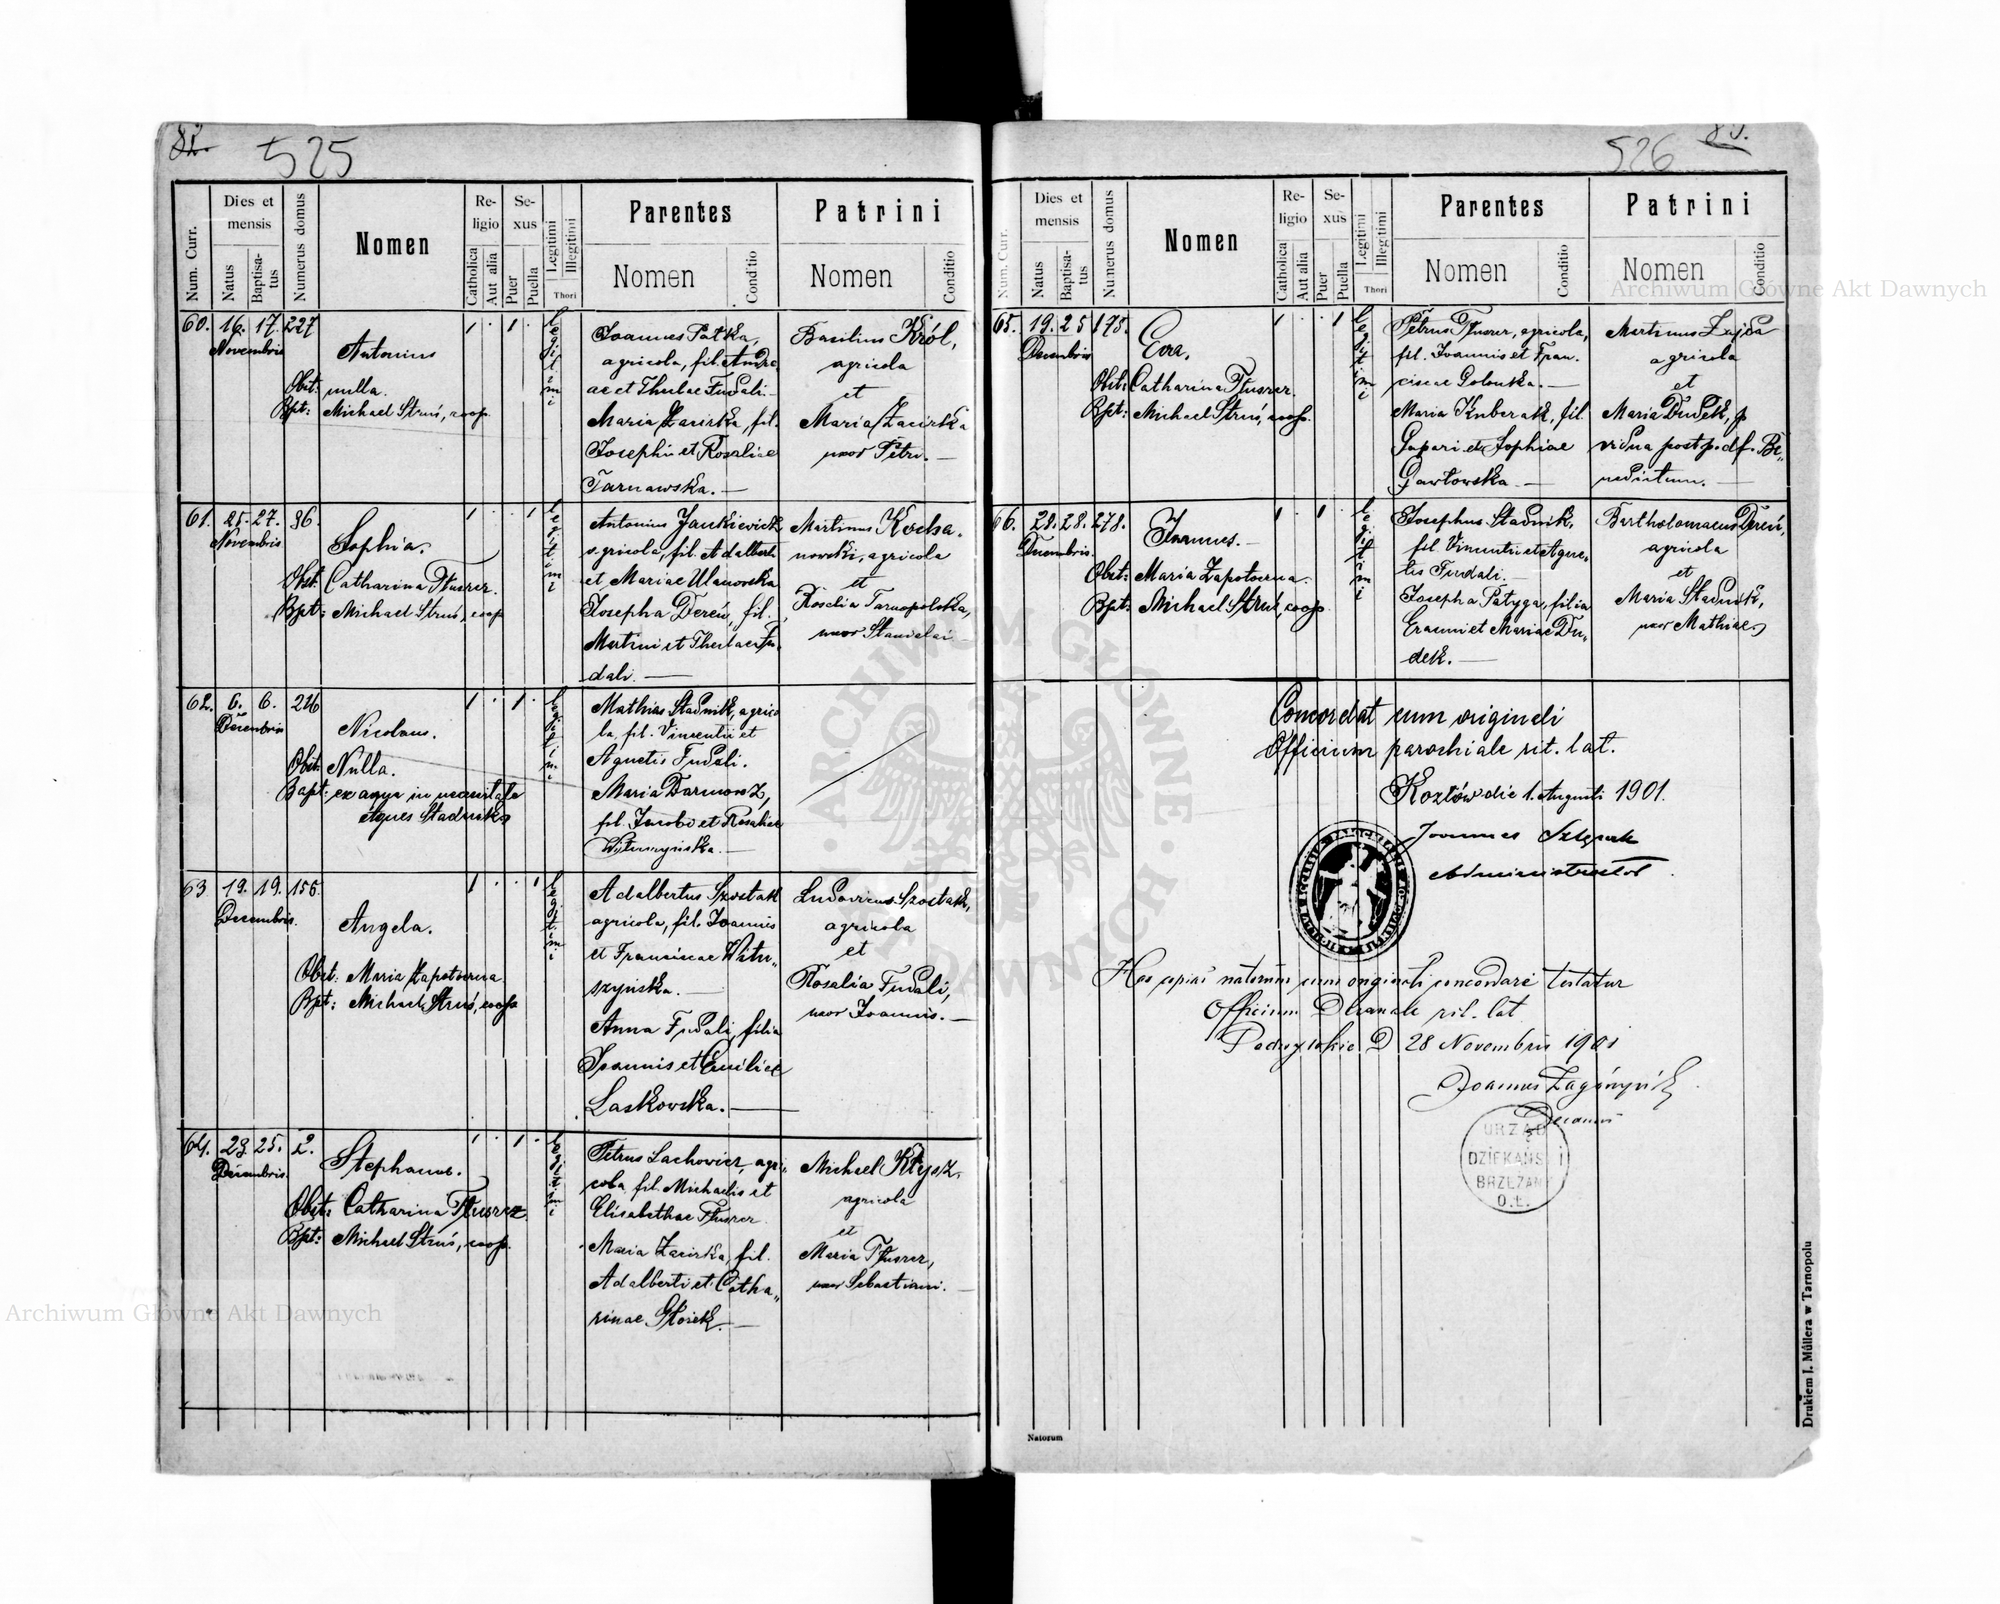 82.
525
Num. Curr.
Dies et mensis
Natus
Baptisa-tus
Numerus domus
Nomen
Re-ligio
Catholica
Aut alia
Se-xus
Puer
Puella
Legitimi
Illegitimi
Thori
Parentes
Nomen
Conditio
Patrini
Nomen
Conditio
60. 16. 17. 227
Novembris
Antonius
Obst: nulla.
Bpt: Michael Struś, coop.
1 . 1 .
legitimi
Joannes Patka,
agricola, fil. Andre
ae et Theclae Fudali.
Maria Zacirka, fil.
Josephi et Rosaliae
Tarnawska.
Basilius Król,
agricola
et
Maria Zacirka
uxor Petri.
61. 25. 27. 96.
Novembris
Sophia.
Obst: Catharina Tłuszcz.
Bpt: Michael Struś, coop
1 . . 1
legitimi
Antonius Jankiewicz
agricola, fil. Adalberti
et Mariae Ulanowska
Josepha Dereń, fil.
Martini et Theclae Fu-
dali.
Martinus Kocha-
nowski, agricola
et
Rosalia Tarnopolska,
uxor Stanislai
62. 6. 6. 216
Decembris
Nicolaus.
Obst: Nulla.
Bapt: ex aqua in necessitate
Agnes Stadnik
1 . 1 .
legitimi
Mathias Stadnik, agrico
la, fil. Vincentii et
Agnetis Fudali.
Maria Darmorz,
fil. Jacobi et Rosaliae
Wituszyńska.
63 19. 19. 156.
Decembris.
Angela.
Obst: Maria Zapotoczna
Bpt: Michael Struś, coop
1 . . 1
legitimi
Adalbertus Szostak
agricola, fil. Joannis
et Franciscae Witu-
szyńska.
Anna Fudali, filia
Joannis et Emiliae
Laskowska.
Ludovicus Szostak,
agricola
et
Rosalia Fudali,
uxor Joannis.
64. 23. 25. 2.
Decembris.
Stephanus.
Obst: Catharina Tłuszcz
Bpt: Michael Struś, coop.
1 . 1 .
legitimi
Petrus Lachowicz, agri-
cola, fil. Michaelis et
Elisabethae Tłuszcz
Maria Zacirka, fil.
Adalberti et Catha-
rinae Głosek.
Michael Kłysz,
agricola
et
Maria Tłuszcz,
uxor Sebastiani.
526
Num. Curr.
Dies et mensis
Natus
Baptisa-tus
Numerus domus
Nomen
Re-ligio
Catholica
Aut alia
Se-xus
Puer
Puella
Legitimi
Illegitimi
Thori
Parentes
Nomen
Conditio
Patrini
Nomen
Conditio
65. 19. 25 175.
Decembris
Eva.
Obst: Catharina Tłuszcz.
Bpt: Michael Struś, coop.
1 . . 1
legitimi
Petrus Tłuszcz, agricola,
fil. Joannis et Fran-
ciscae Golouka.
Maria Kuberak, fil.
Gaspari et Sophiae
Gawłowska
Martinus Zajda
agricola
et
Maria Dudek,
vidua post p. df. Be-
nedictum.
66. 28. 28. 278.
Decembris.
Joannes.
Obst: Maria Zapotoczna.
Bpt: Michael Struś, coop.
1 . 1 .
legitimi
Josephus Stadnik,
fil. Vincentii et Agne-
tis Fudali.
Josepha Patyga, filia
Erasmi et Mariae Du-
dek.
Bartholomaeus Dereń,
agricola
et
Maria Stadnik,
uxor Mathiae
Concordat cum originali
Officium parochiale rit. lat.
Kozłów die 1. Augusti 1901.
Joannes
Administrator
Has copias natorum cum originali concordare testatur
Officium Decanale rit. lat
D 28 Novembris 1901
Joannes
Decanus
URZĄD
DZIEKAŃSKI
BRZEŻANY
O.Ł.
Natorum
Drukiem I. Müllera w Tarnopolu
Archiwum Główne Akt Dawnych
Archiwum Główne Akt Dawnych
ARCHIWUM GŁÓWNE AKT DAWNYCH